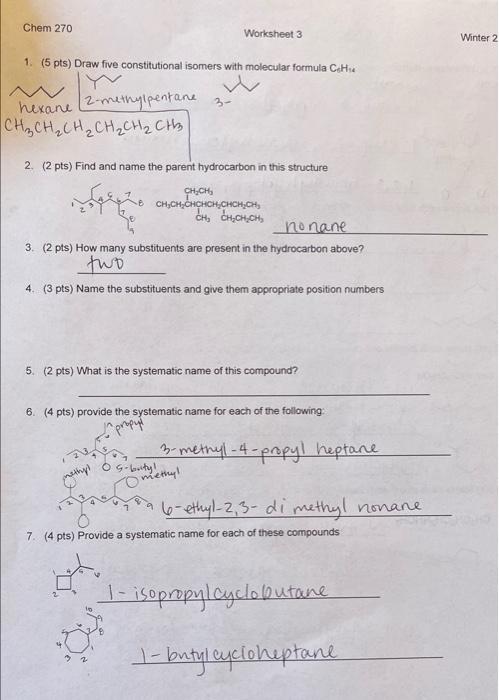 Chem 270
Worksheet 3
Winter 2
1. (5 pts) Draw five constitutional isomers with molecular formula C₆H₁₄
hexane
2-methylpentane
3-
CH₃CH₂CH₂CH₂CH₂CH₃
2. (2 pts) Find and name the parent hydrocarbon in this structure
CH₂CH₃
CH₃CH₂CHCHCH₂CHCH₂CH₃
CH₃ CH₂CH₂CH₃
nonane
3. (2 pts) How many substituents are present in the hydrocarbon above?
two
4. (3 pts) Name the substituents and give them appropriate position numbers
5. (2 pts) What is the systematic name of this compound?
6. (4 pts) provide the systematic name for each of the following:
propyl
3-methyl-4-propyl heptane
methyl
5-butyl
methyl
6-ethyl-2,3-dimethyl nonane
7. (4 pts) Provide a systematic name for each of these compounds
1-isopropylcyclobutane
1-butylcycloheptane